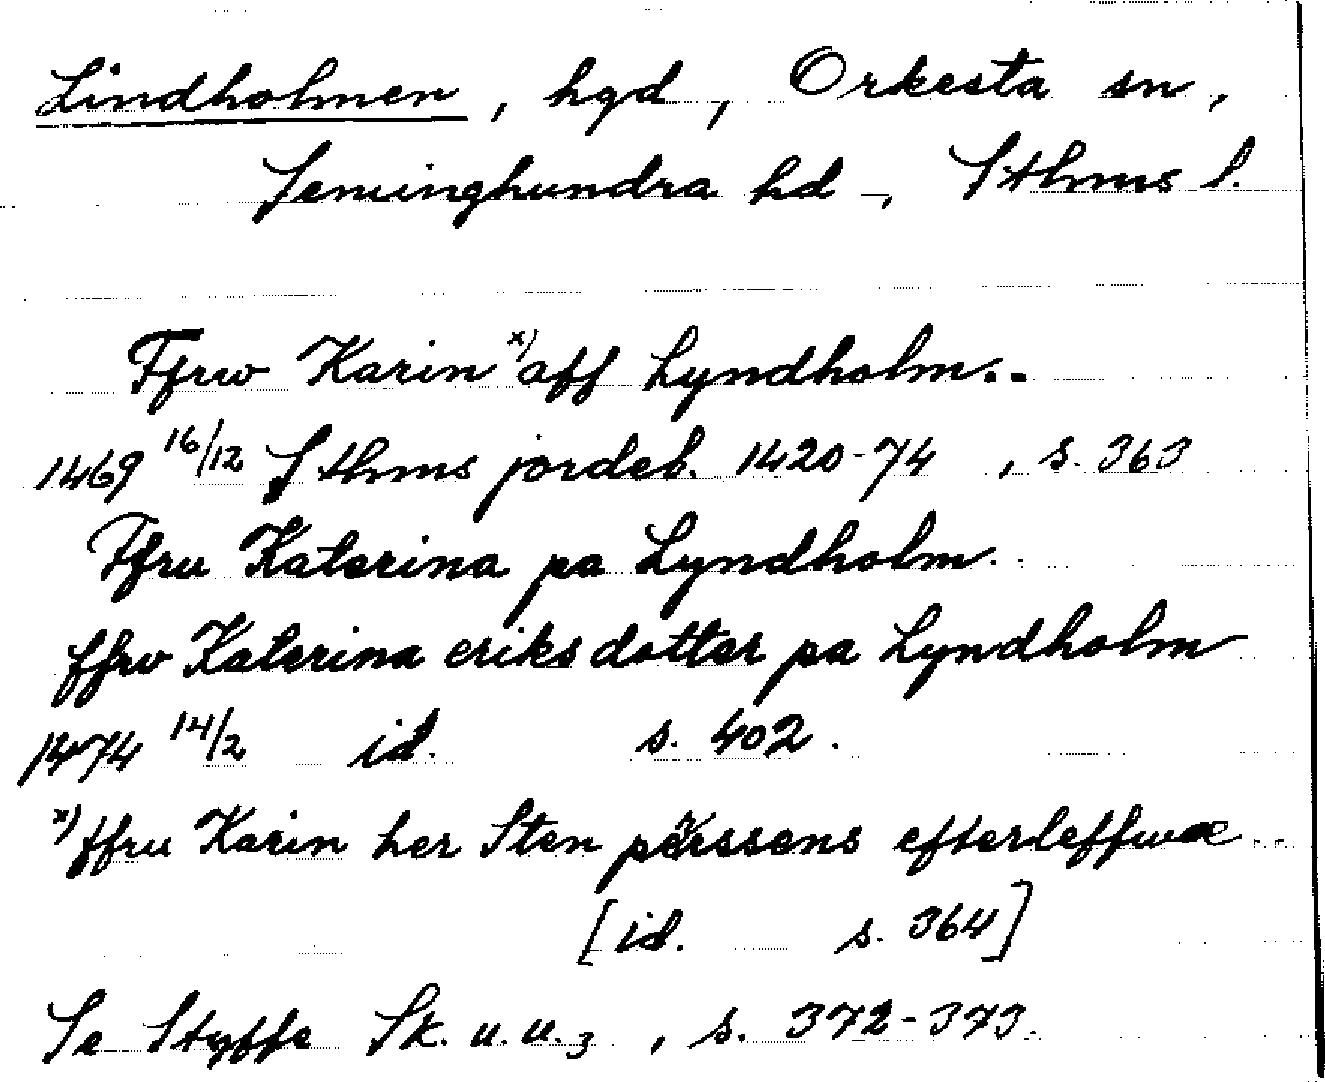 Lindholmen, hgd, Orkesta sn,
Seminghundra hd, Sthms l.
Ffrw Karin x) aff Lyndholm..
1469 16/12 Sthms jordeb. 1420-74, s. 363
Ffru Katerina pa Lyndholm.
ffrv Katerina eriksdotter pa Lyndholm
1474 14/2 id. s. 402.
x) ffru Karin her Sten perssens efterleffwæ
[id. s. 364]
Se Styffe Sk. u. u.3, s. 372-373.